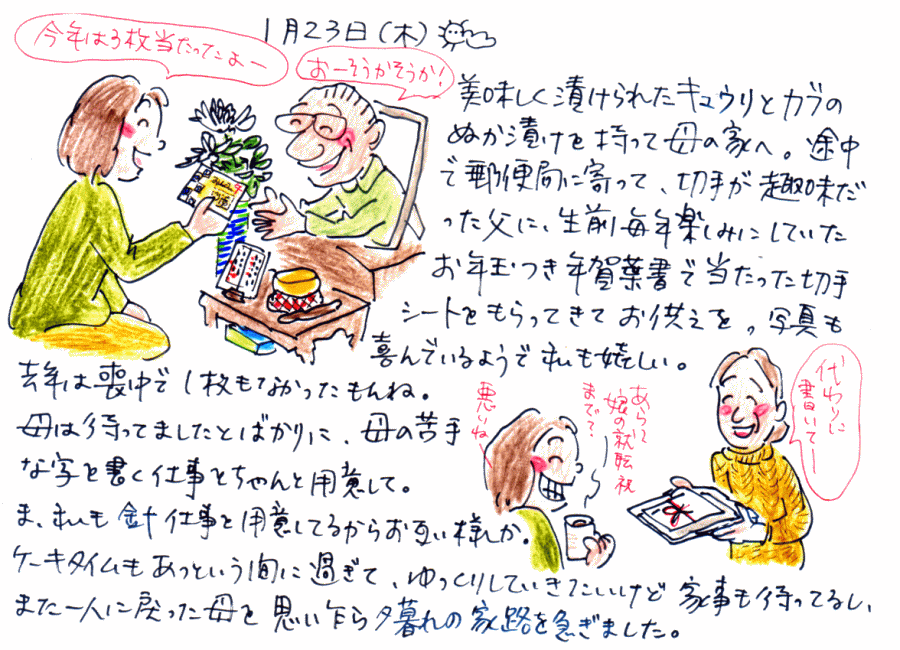 1月23日(木)
今年は3枚当たってたよー
おーそうかそうか!
美味しく漬けられたキュウリとカブの
ぬか漬けを持って母の家へ。途中
で郵便局に寄って、切手が趣味だ
った父に、生前毎年楽しみにしていた
お年玉つき年賀葉書で当たった切手
シートをもらってきてお供えを。写真も
喜んでいるようで私も嬉しい。
去年は喪中で1枚もなかったもんね。
母は待ってましたとばかりに、母の苦手
な字を書く仕事をちゃんと用意して。
ま、私も針仕事を用意してるからお互い様か。
ケーキタイムもあっという間に過ぎて、ゆっくりしていきたいけど家事も待ってるし、
また一人に戻った母を思い乍ら夕暮れの家路を急ぎました。
悪いね
あらら
嫁の就転祝
まで?
代わりに
書いてー